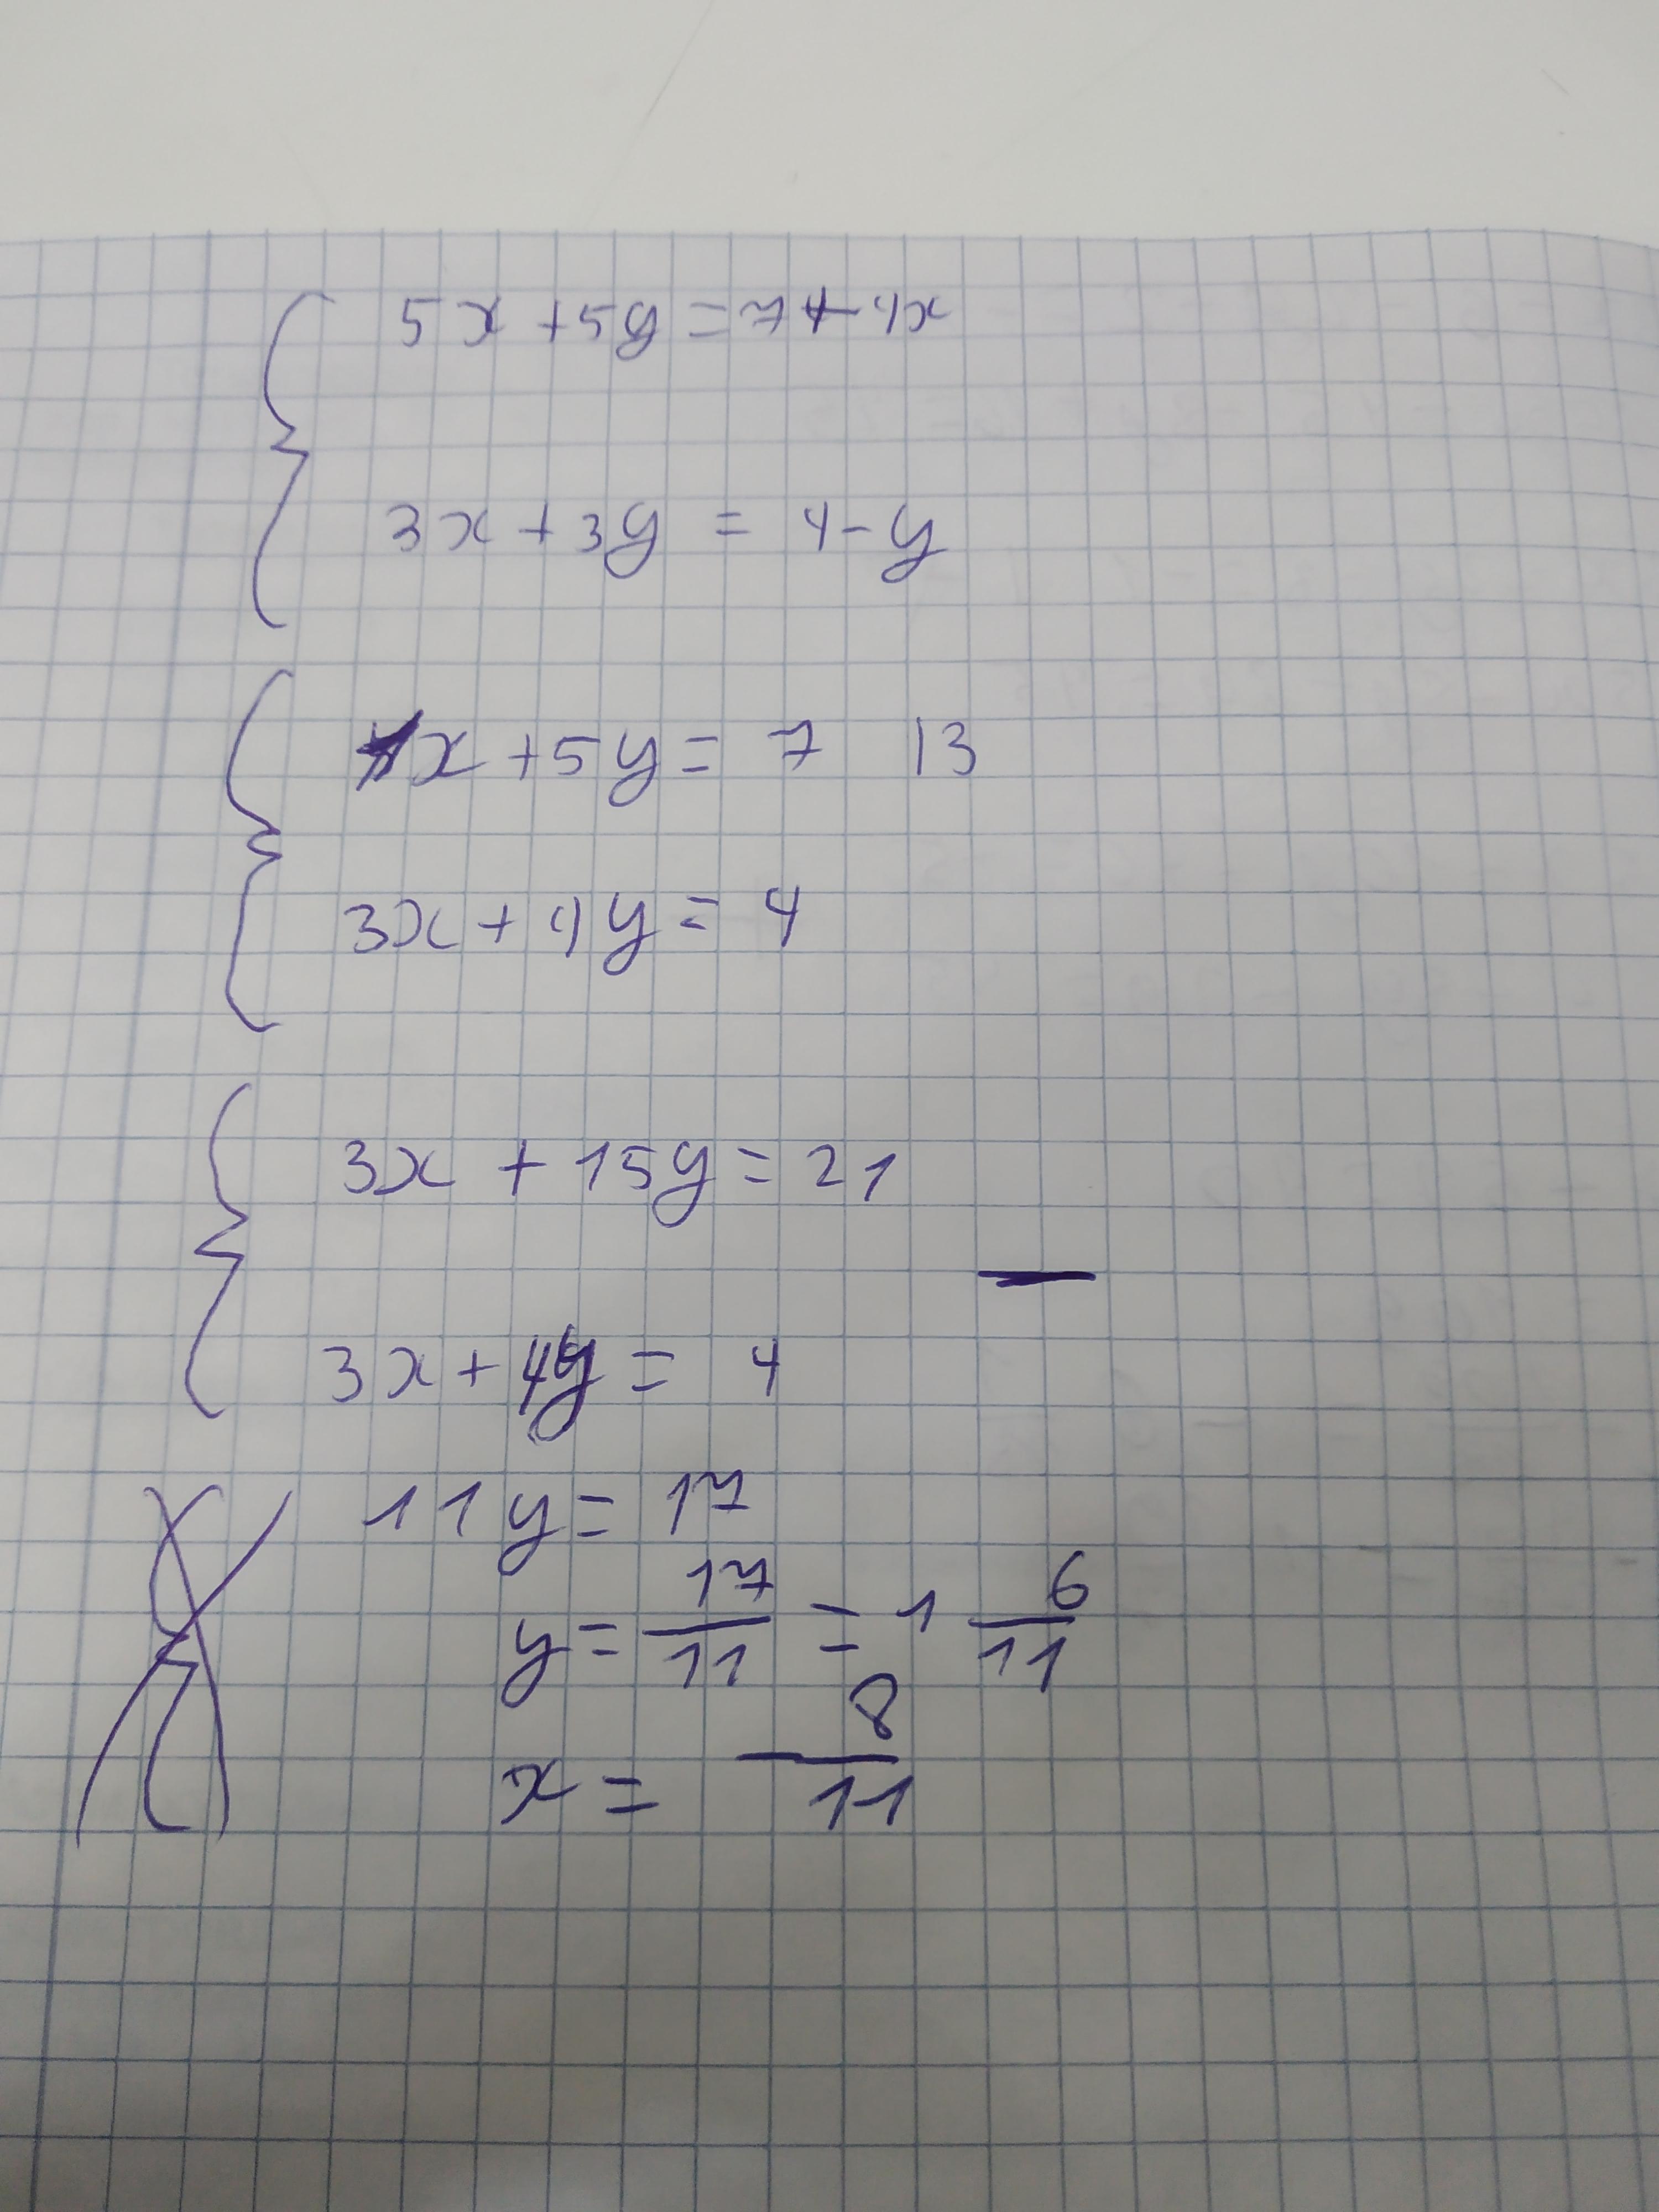 5x + 5y = 7 + 4x
3x + 3y = 4 - y
x + 5y = 7 |3
3x + 4y = 4
3x + 15y = 21
—
3x + 4y = 4
11y = 17
y = 17/11 = 1 6/11
x = - 8/11